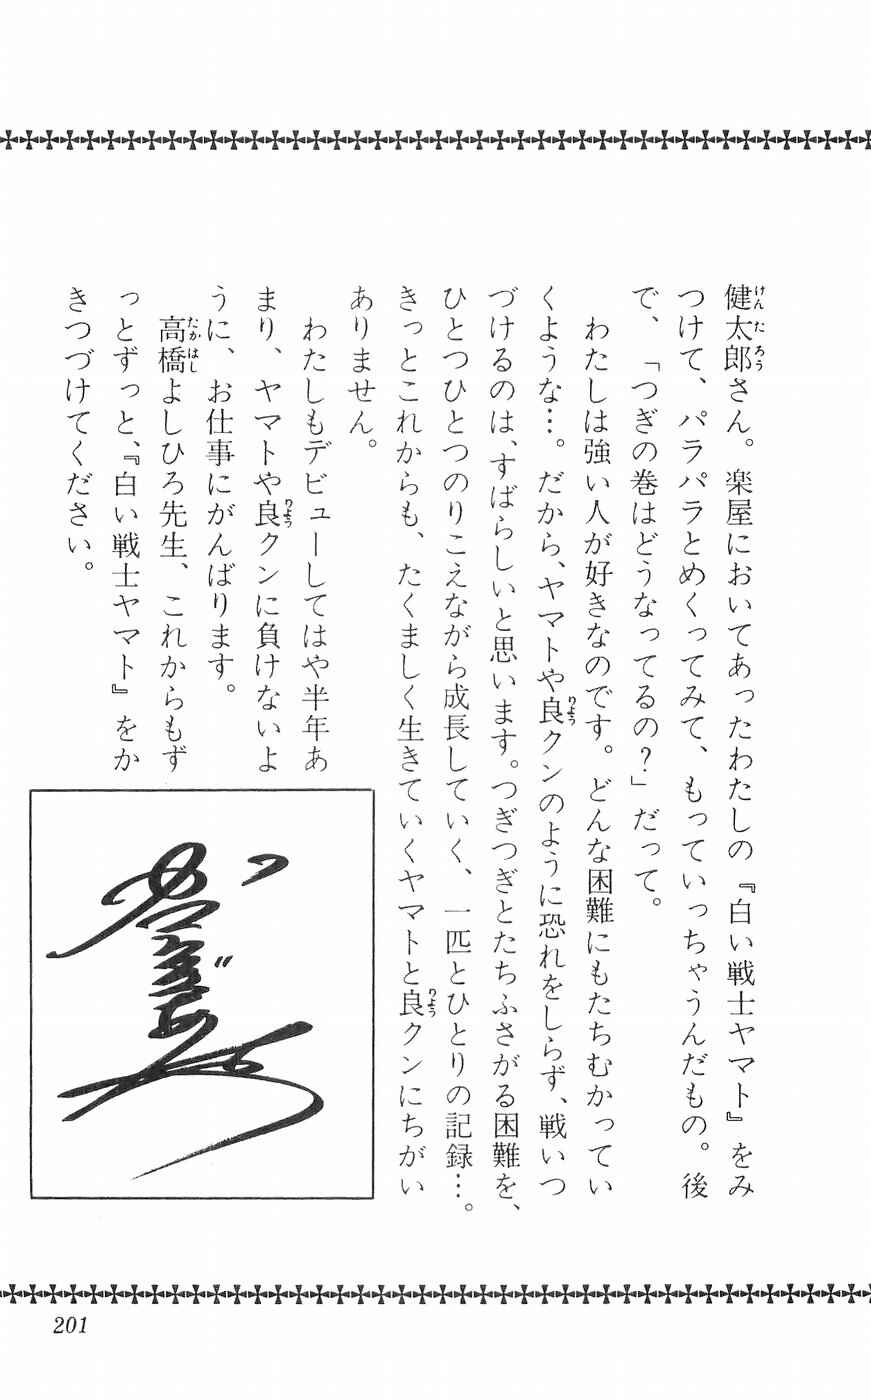 健太郎さん。楽屋においてあったわたしの『白い戦士ヤマト』をみ
つけて、パラパラとめくってみて、もっていっちゃうんだもの。後
で、「つぎの巻はどうなってるの？」だって。
わたしは強い人が好きなのです。どんな困難にもたちむかってい
くような…。だから、ヤマトや良クンのように恐れをしらず、戦いつ
づけるのは、すばらしいと思います。つぎつぎとたちふさがる困難を、
ひとつひとつのりこえながら成長していく、一匹とひとりの記録…。
きっとこれからも、たくましく生きていくヤマトと良クンにちがい
ありません。
わたしもデビューしてはや半年あ
まり、ヤマトや良クンに負けないよ
うに、お仕事にがんばります。
高橋よしひろ先生、これからもず
っとずっと、『白い戦士ヤマト』をか
きつづけてください。
201